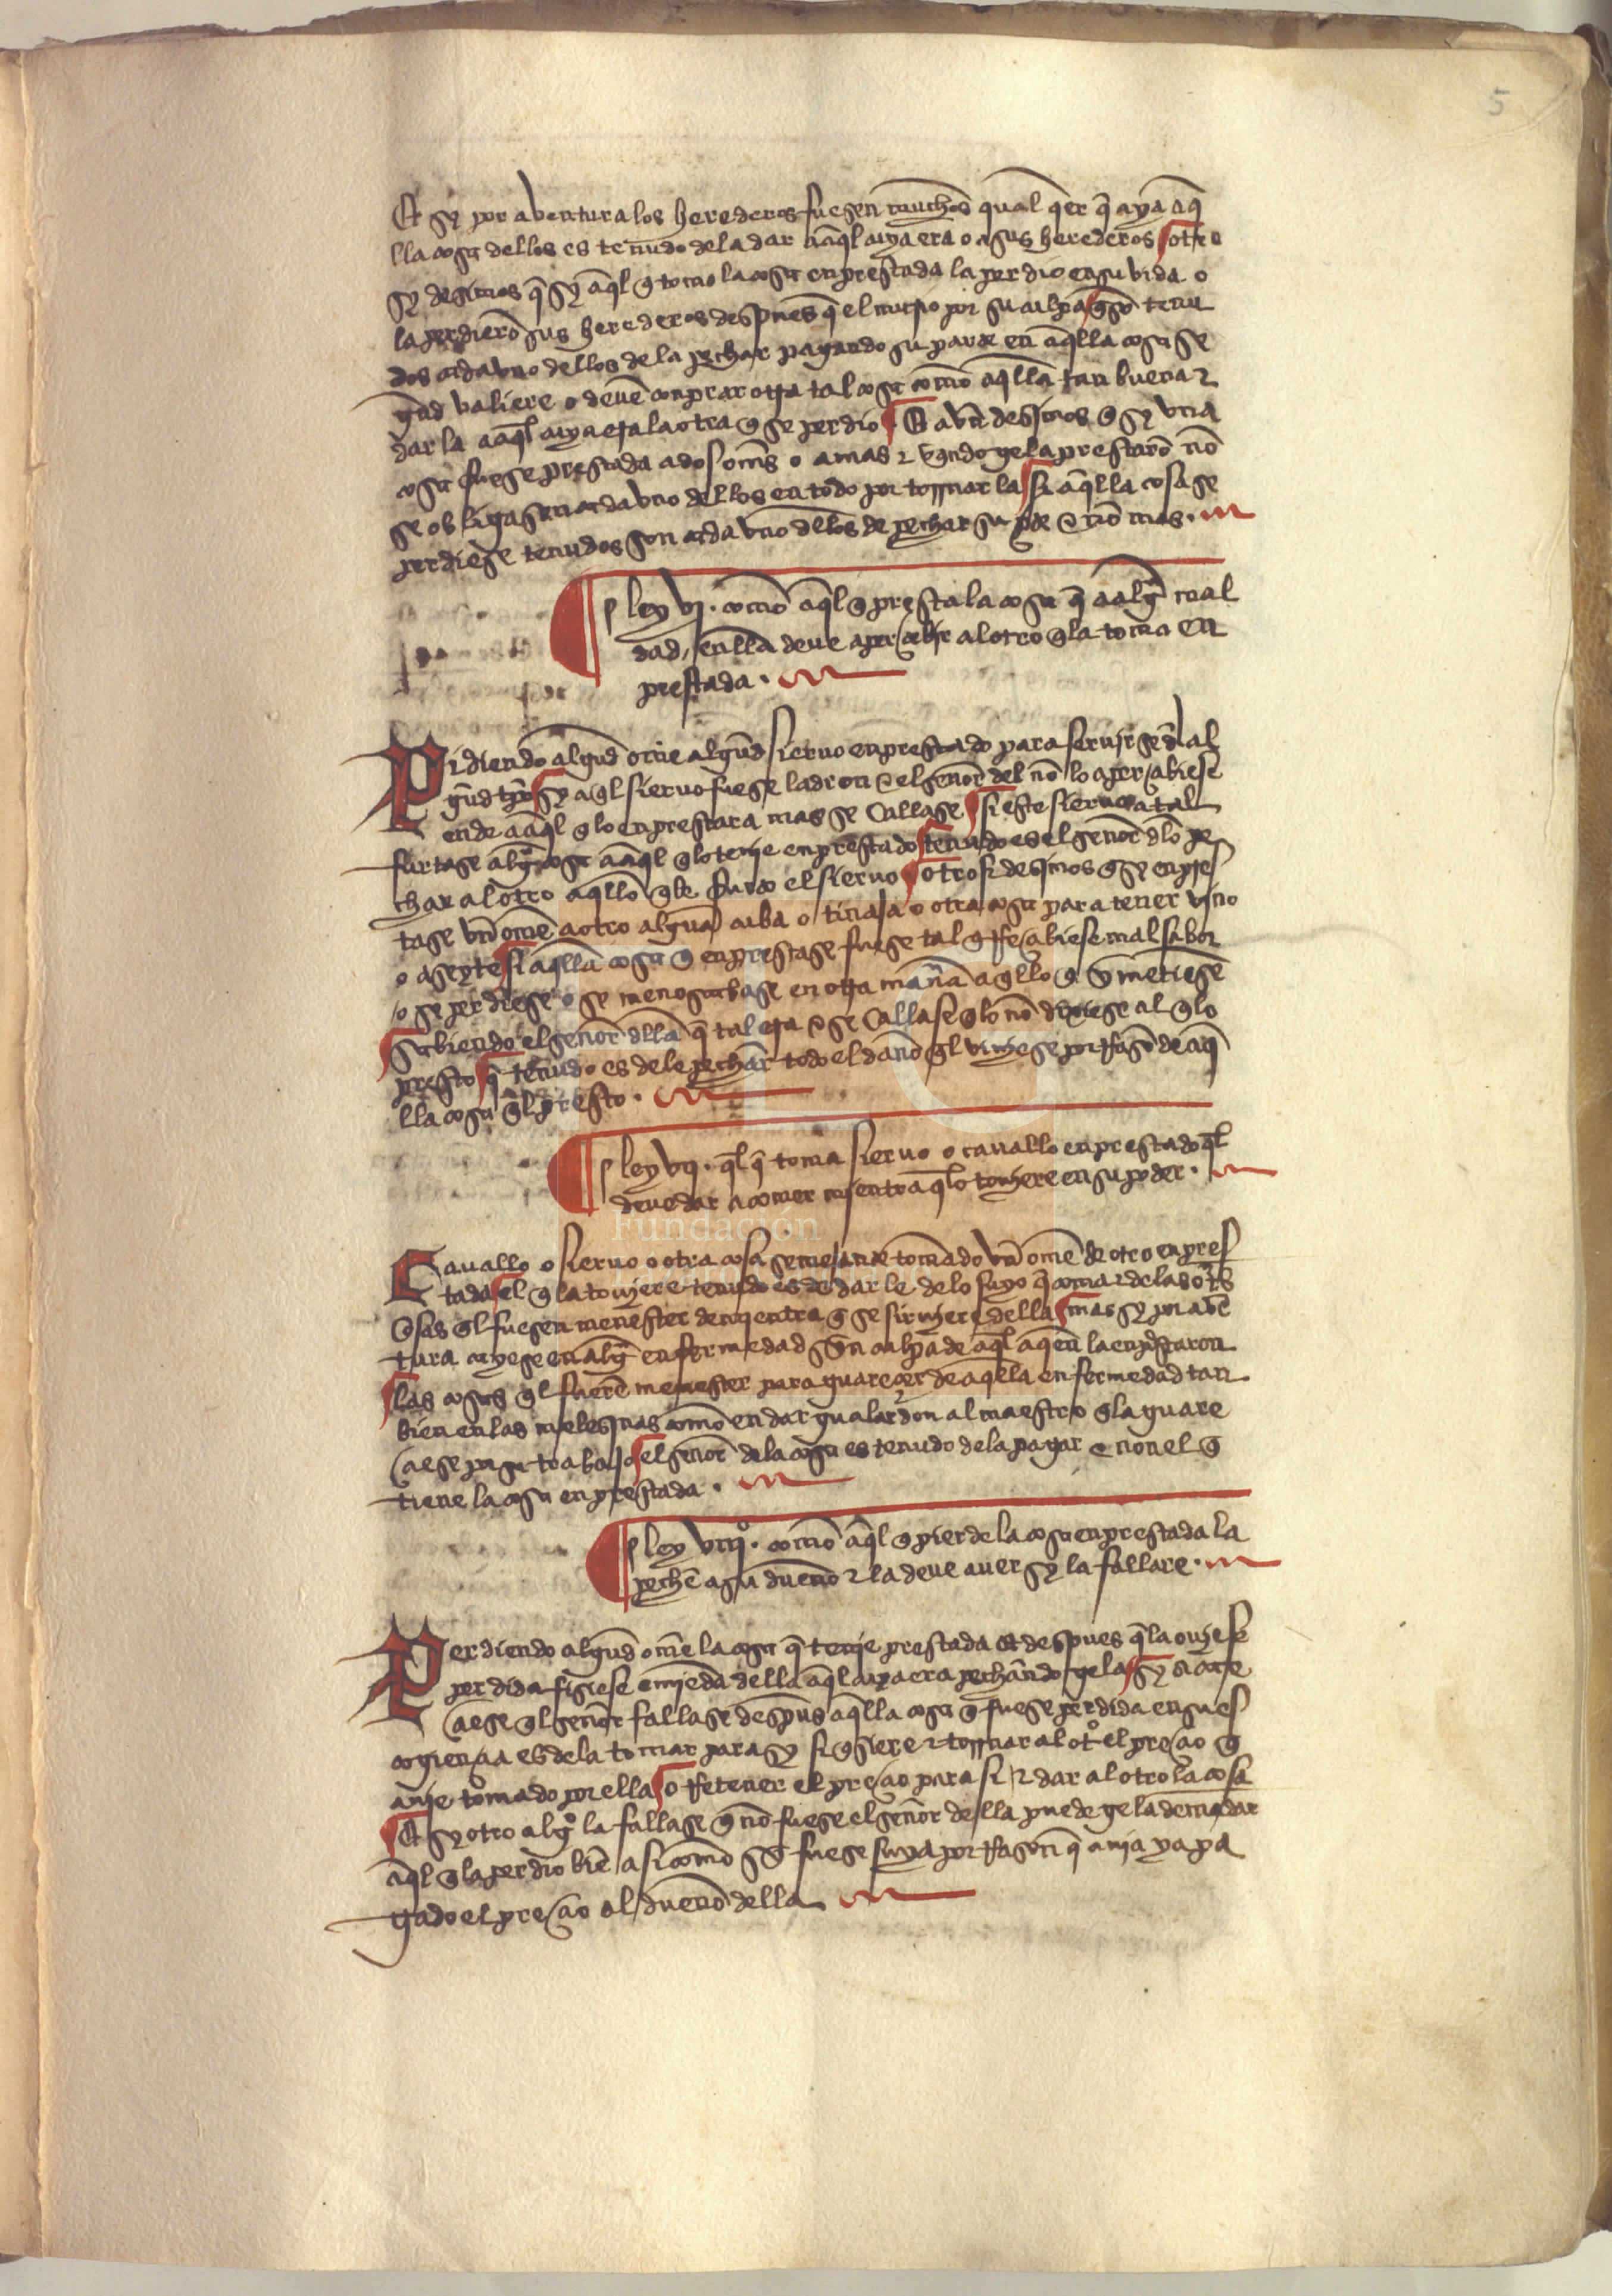 5
Et sy por aventura los herederos fuesen muchos qual qer q̄ aya aq̄
lla cosa dellos es tenudo de la dar a aq̄l cuya era o a sus herederos otro
sy desimos q̄ sy aq̄l q̄ tomo la cosa enprestada la perdio en su vida o
la perdierō sus herederos despues q̄ el murio por su culpa q̄ sō tenu
dos cada vno dellos de la pechar pagando su parte en aq̄lla cosa se
gūd valiere o devē conprar otra tal cosa commo aq̄lla tan buena ⁊
dar la a aq̄l cuya era la otra q̄ se perdio Et avn desimos q̄ sy vna
cosa fuese prestada a dos oms̄ o a mas ⁊ qndo ge la prestarō nō
se obligasen cada vno dellos en todo por tornar la si aq̄lla cosa se
perdiese tenudos son cada vno dellos de pechar su pte ⁊ nō mas
ley vj. commo aq̄l q̄ presta la cosa q̄ a algā mal
dad en lla deve apercebir al otro q̄ la toma en
prestada.
Pidiendo algūd ome algūd sieruo enprestado para seruirse dl al
gūd tpō sy aql sieruo fuese ladron ⁊ el señor del nō lo apercibiese
ende a aq̄l q̄ lo enprestara mas se callase si este sieruo atal
furtase algā cosa a aq̄l q̄ lo tenie enprestado tenudo es el señor dlo pe
char al otro aq̄llo q̄ le furto el sieruo otrosi desimos q̄ sy enpres
tase vn ome a otro algūa cuba o tinaja o otra cosa para tener vino
o aseyte si aq̄lla cosa q̄ enprestase fuese tal q̄ rescibiese mal sabor
o se perdiese o se menoscabase en otra manā aqllo q̄ y metiese
Sabiendo el señor dlla q̄ tal era ⁊ se callase q̄ lo nō dixiese al q̄ lo
presto q̄ tenudo es de le pechar todo el daño q̄l viniese por rasō de aq̄
lla cosa q̄l presto.
ley vij. q̄l q̄ toma sieruo o cauallo enprestado q̄l
deue dar a comer mientra q̄ lo touiere en su poder.
Cauallo o sieruo o otra cosa semejante tomado vn ome de otro enpres
tada el q̄ la touiere tenudo es de dar le de lo suyo q̄ coma ⁊ de las otrs
cosas q̄l fuesen menester demientra q̄ se siruiere della mas sy por avē
tura cayese en algā enfermedad syn culpa de aq̄l a quen la enprestaron
las cosas q̄l fuerē menester para guarecer de aq̄lla enfermedad tan
bien en las melesinas commo en dar gualardon al maestro q̄ la guare
ciese por su trabajo el señor de la cosa es tenudo de la pagar ⁊ non el q̄
tiene la cosa enprestada.
ley viijº. commo aq̄l q̄ pierde la cosa enprestada la
pechē a su dueño ⁊ la deue auer sy la fallare.
Perdiendo algūd ome la cosa q̄ tenie prestada et despues q̄ la ouiese
perdida fisiese emienda della a q̄l cuya era pechando ge la sy acae
ciese q̄l señor fallase despues aq̄lla cosa q̄ fuese perdida en su es
cogiencia es de la tomar para sy si quiere ⁊ tornar al otº el precio q̄
auie tomado por ella o retener el precio para si ⁊ dar al otro la cosa
Et sy otro algº la fallase q̄ nō fuese el señor della puede ge la demādar
aq̄l q̄ la perdio biē asi commo sy fuese suya por rason q̄ auia ya pa
gado el precio al dueño della
Fundación